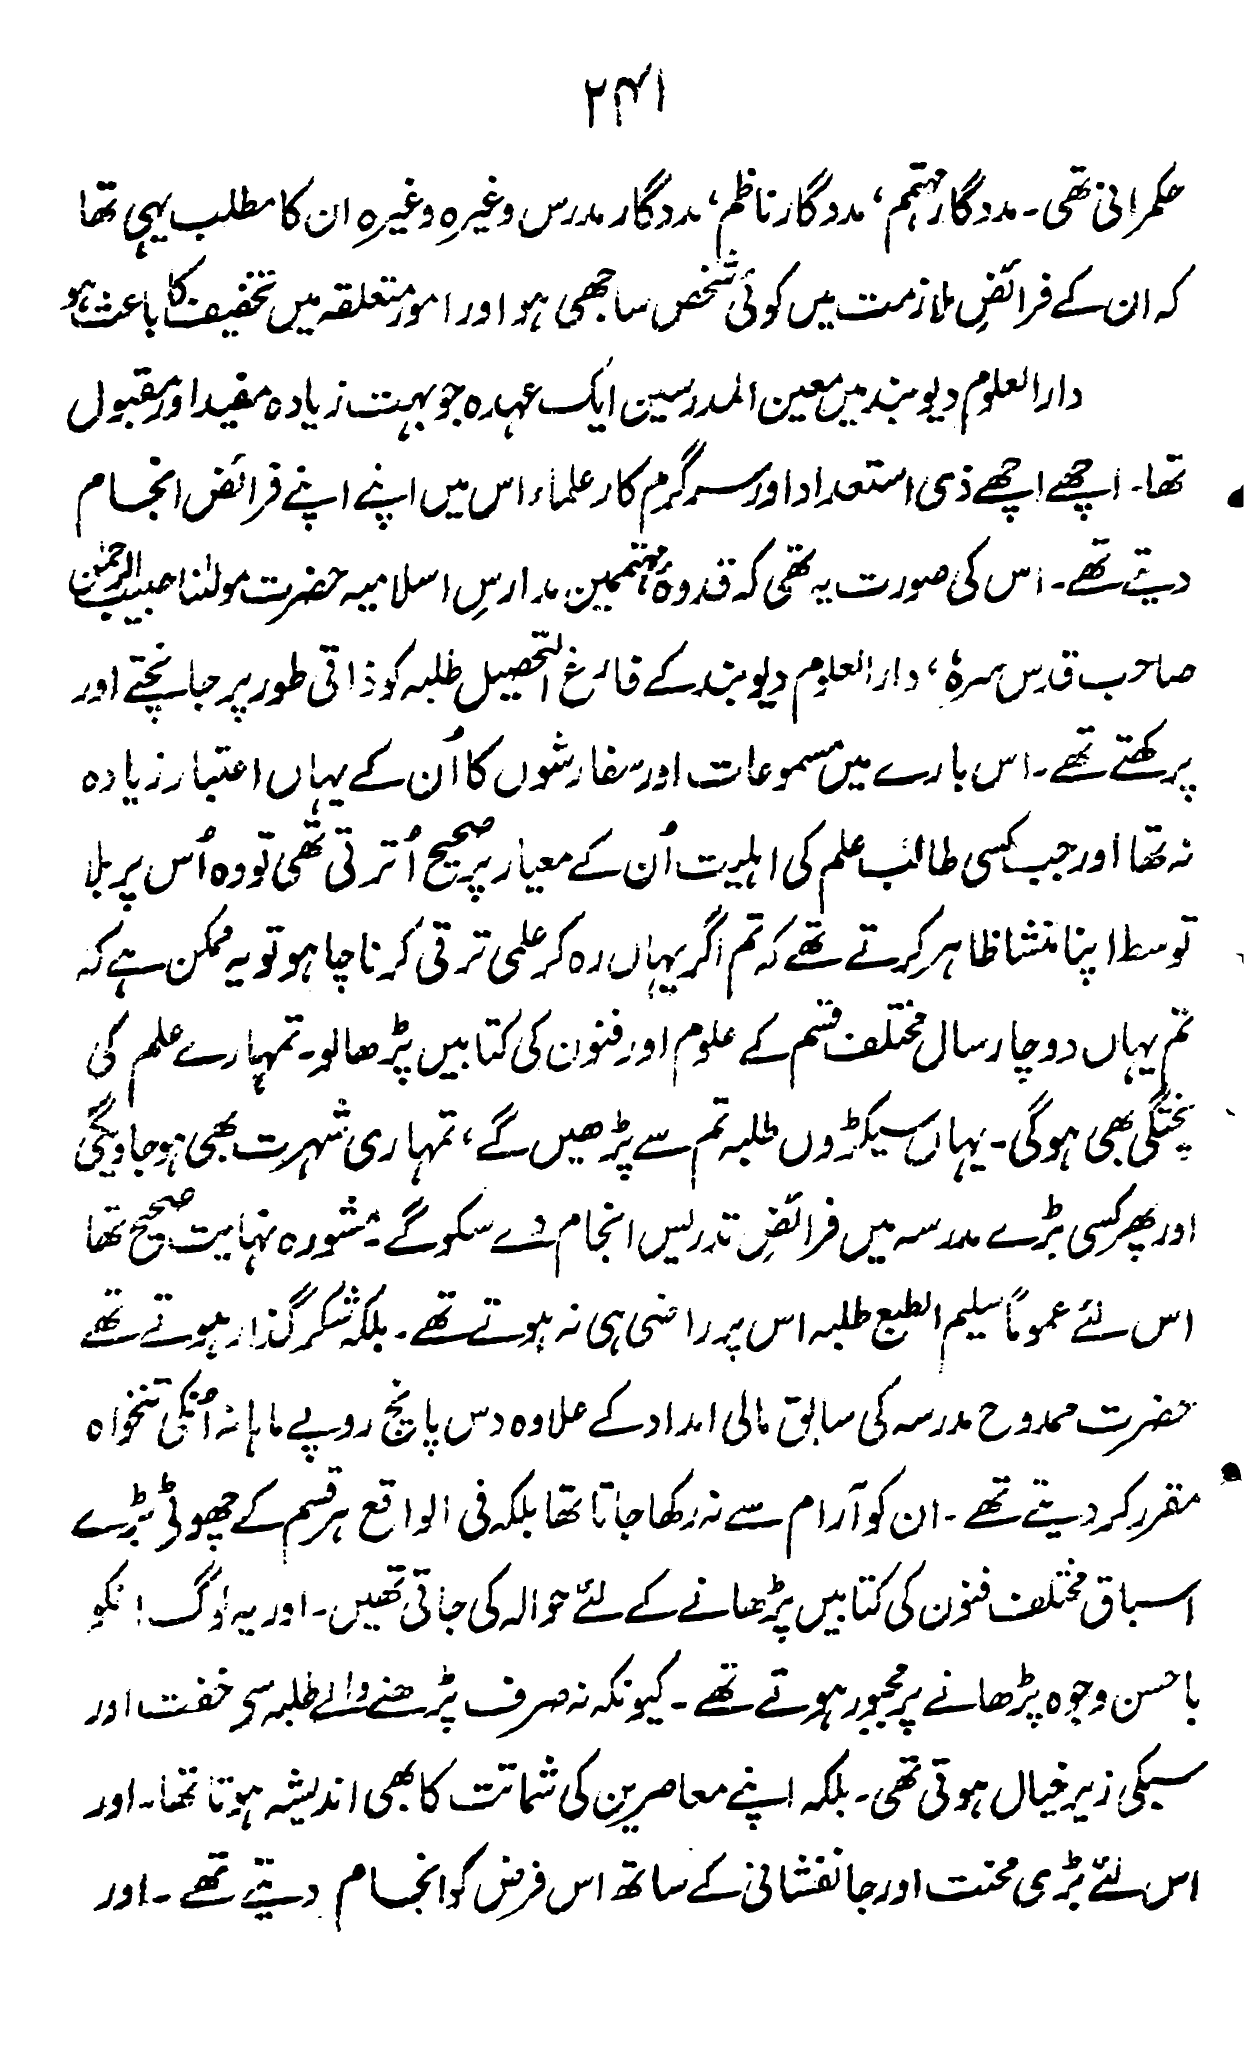 ۲۴۱
حکمرانی تھی۔ مددگار مہتمم، مددگار ناظم، مددگار مدرس وغیرہ وغیرہ ان کا مطلب یہی تھا
کہ ان کے فرائضِ ملازمت میں کوئی شخص ساجھی ہو اور امور متعلقہ میں تخفیف کا باعث ہو
دارالعلوم دیوبند میں معین المدرسین ایک عہدہ جو بہت زیادہ مفید اور مقبول
تھا۔ اچھے اچھے ذی استعداد اور سرگرم کار علماء اس میں اپنے اپنے فرائض انجام
دیتے تھے۔ اس کی صورت یہ تھی کہ قدوۂ مہتممین مدارسِ اسلامیہ حضرت مولٰنا حبیب الرحمٰن
صاحب قدس سرہٗ، دارالعلوم دیوبند کے فارغ التحصیل طلبہ کو ذاتی طور پر جانچتے اور
پرکھتے تھے۔ اس بارے میں مسموعات اور سفارشوں کا اُن کے یہاں اعتبار زیادہ
نہ تھا اور جب کسی طالب علم کی اہلیت اُن کے معیار پر صحیح اُترتی تھی تو وہ اُس پر بلا
توسط اپنا منشا ظاہر کرتے تھے کہ تم اگر یہاں رہ کر علمی ترقی کرنا چاہو تو یہ ممکن ہے کہ
تم یہاں دو چار سال مختلف قسم کے علوم اور فنون کی کتابیں پڑھا لو۔ تمہارے علم کی
پختگی بھی ہو گی۔ یہاں سیکڑوں طلبہ تم سے پڑھیں گے، تمہاری شہرت بھی ہو جاویگی
اور پھر کسی بڑے مدرسہ میں فرائضِ تدریس انجام دے سکو گے۔ مشورہ نہایت صحیح تھا
اس لئے عموماً سلیم الطبع طلبہ اس پر راضی ہی نہ ہوتے تھے۔ بلکہ شکر گذار ہوتے تھے
حضرت ممدوح مدرسہ کی سابق مالی امداد کے علاوہ دس پانچ روپے ماہانہ اُنکی تنخواہ
مقرر کر دیتے تھے۔ ان کو آرام سے نہ رکھا جاتا تھا بلکہ فی الواقع ہر قسم کے چھوٹی بڑے
اسباق مختلف فنون کی کتابیں پڑھانے کے لئے حوالہ کی جاتی تھیں۔ اور یہ لوگ انکو
باحسن وجوہ پڑھانے پر مجبور ہوتے تھے۔ کیونکہ نہ صرف پڑھنے والے طلبہ سی خفت اور
سبکی زیر خیال ہوتی تھی۔ بلکہ اپنے معاصرین کی شماتت کا بھی اندیشہ ہوتا تھا۔ اور
اس لئے بڑی محنت اور جانفشانی کے ساتھ اس فرض کو انجام دیتے تھے۔ اور